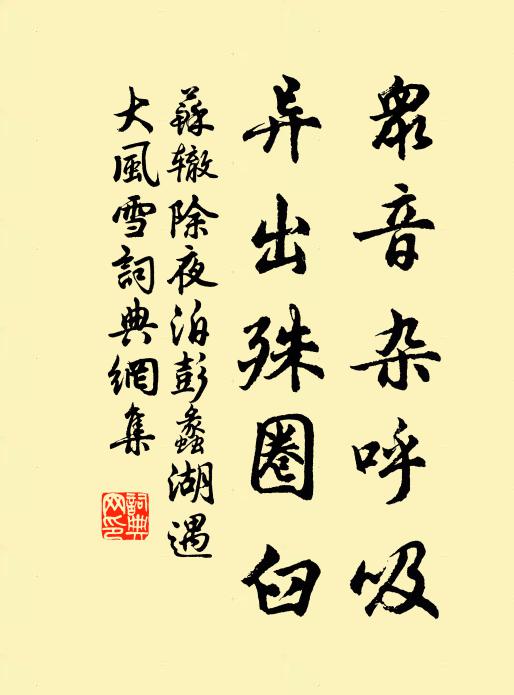 眾音杂呼吸
异出殊圈臼
蘇辙除夜泊彭蠡湖遇
大風雪詞典網集
詞典
网印